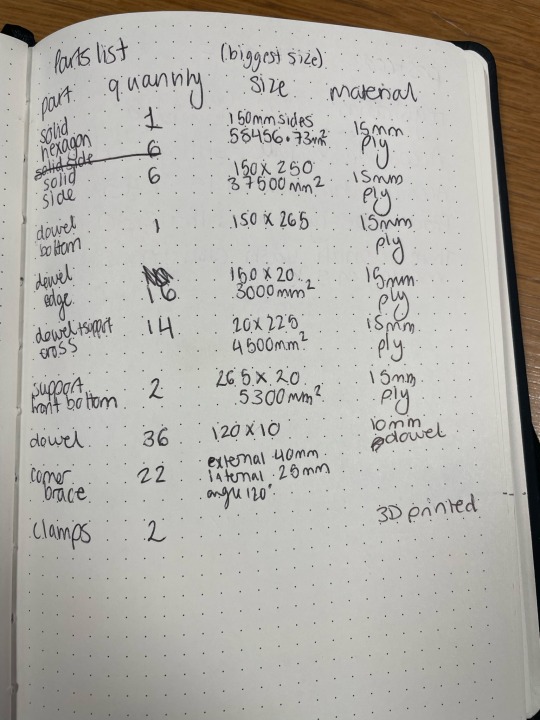 Parts list (biggest size)
part quantity size material
solid hexagon 1 150mm sides 15mm ply
58456.73mm²
solid side 6
solid side 6 150 x 250 15mm ply
37500mm²
dowel bottom 1 150 x 265 15mm ply
dowel edge 16 150 x 20 15mm ply
3000mm²
dowel + support cross 14 20 x 225 15mm ply
4500mm²
support front bottom 2 265 x 20 15mm ply
5300mm²
dowel 36 120 x 10 10mm dowel
corner brace 22 external 40mm
internal 25mm
angle 120°
clamps 2 3D printed